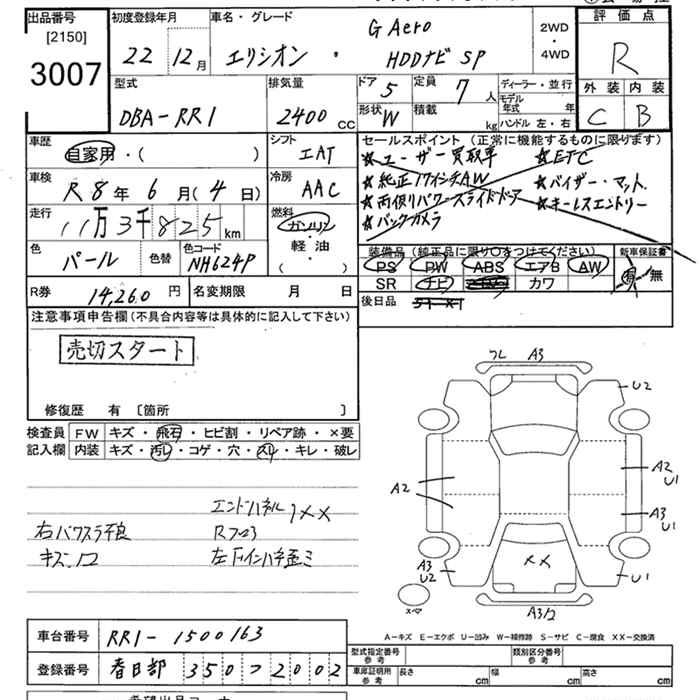 出品番号
[2150]
3007
初度登録年月
22 12月
車名・グレード
エリシオン・
G Aero
HDDナビ SP
2WD
・
4WD
評 価 点
R
外 装 内 装
C B
型式
DBA-RR1
排気量
2400 cc
ドア 5
定員 7 人
形状 W
積載 kg
ディーラー・並行
モデル年式 年
ハンドル 左・右
車歴
自家用・( )
シフト
エAT
車検
R8年 6月(4日)
冷房
AAC
走行
11万3千825km
燃料
ガソリン
・
軽・油
( )
色
パール
色替
色コード
NH624P
R券 14,260 円
名変期限 月 日
セールスポイント (正常に機能するものに限ります)
★ユーザー買取車 ★ETC
★純正17インチAW ★バイザー・マット.
★両側パワースライドドア ★キーレスエントリー
★バックカメラ
装備品 (純正品に限り○をつけてください)
新車保証書
PS PW ABS エアB AW
SR ナビ カワ
有・無
後日品
注意事項申告欄(不具合内容等は具体的に記入して下さい)
売切スタート
修復歴 有 〔箇所 〕
検査員
記入欄
FW キズ・飛石・ヒビ割・リペア跡・×要
内装 キズ・汚レ・コゲ・穴・スレ・キレ・破レ
右バックスラ不良
キズ.凹
左下インハチ歪ミ
フレ A3
U2
A2
U1
A2
A3
U1
A3
U2
U1
××
A3/2
スペア
A-キズ E-エクボ U-凹み W-補修跡 S-サビ C-腐食 XX-交換済
車台番号 RR1-1500163
登録番号 春日部 350 つ 2002
型式指定番号
参考
類別区分番号
参考
車庫証明用
参考
長さ cm
幅 cm
高さ cm